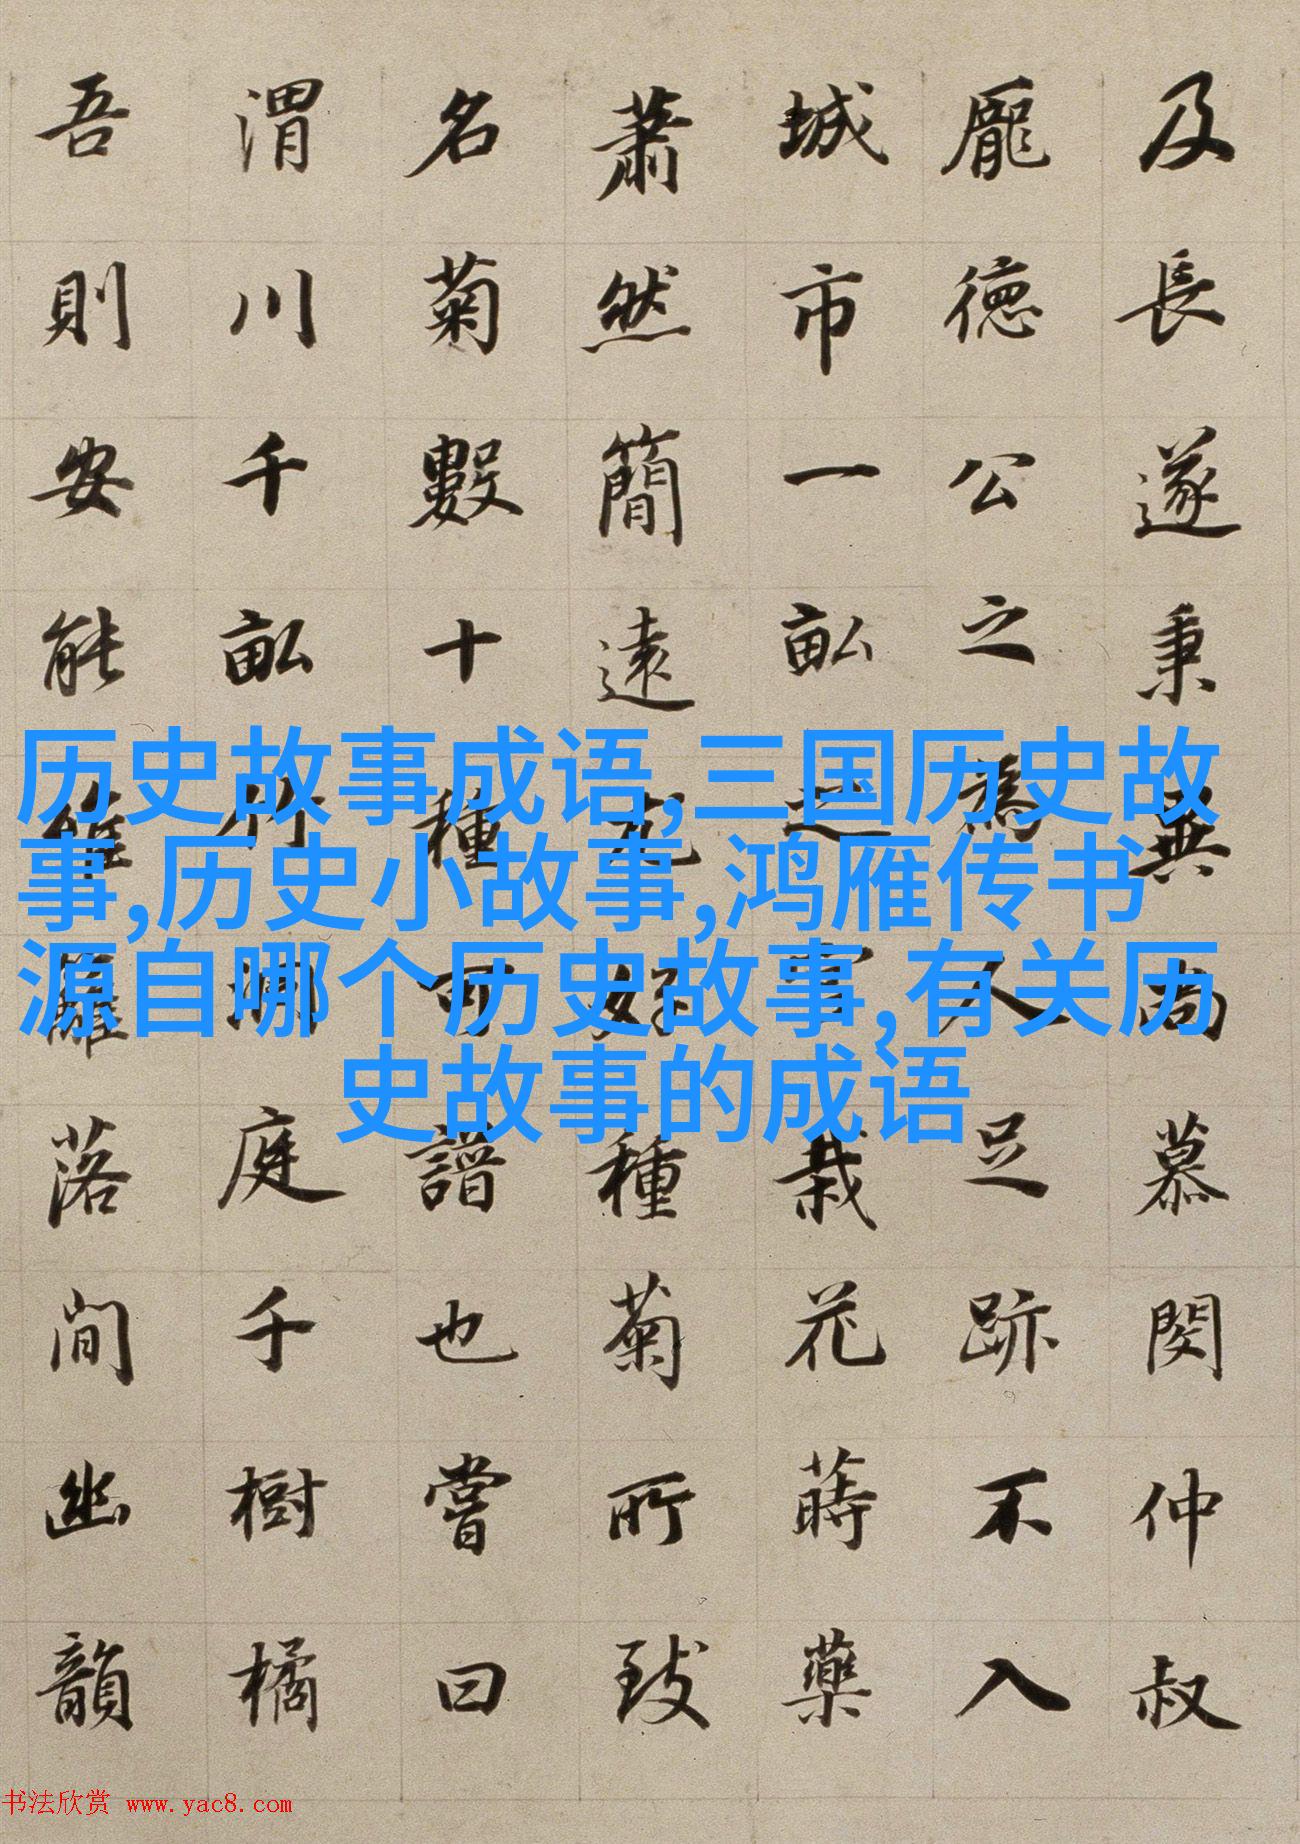 及長遂秉異尚慕閔仲叔
龐德公之為人足跡不入
城市一畝之宮栽花蒔藥
蕭然簡遠尤好種菊所致
名菊數十種可譜也嘗曰
渭川千畝竹洞庭千樹橘
吾則安能籬落間幽韻
历史故事成语,三国历史故
事,历史小故事,鸿雁传书
源自哪个历史故事,有关历
史故事的成语
书法欣赏 www.yac8.com